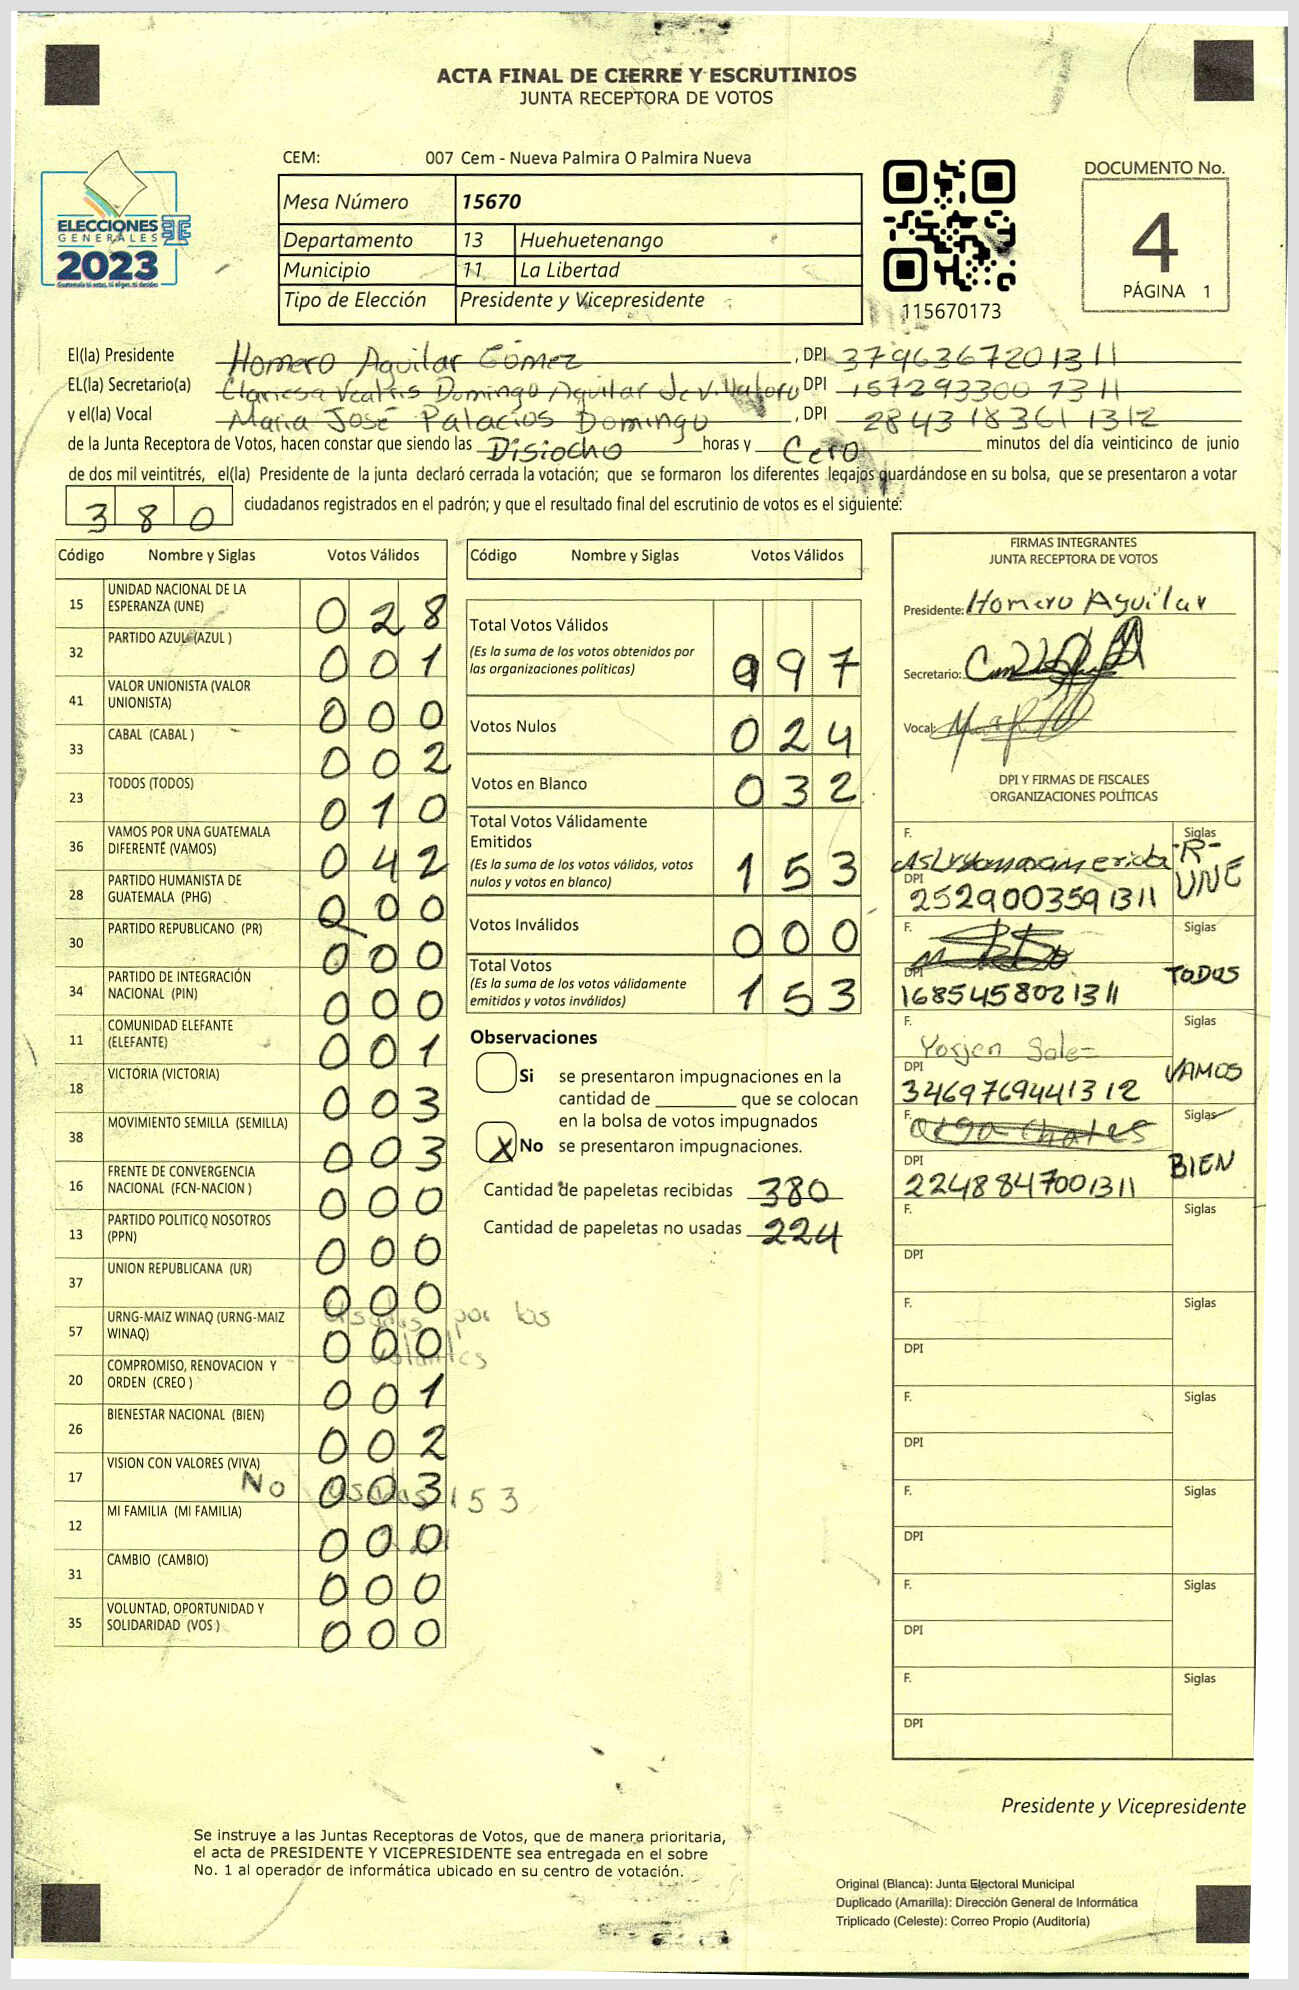 ACTA FINAL DE CIERRE Y ESCRUTINIOS
JUNTA RECEPTORA DE VOTOS
CEM: 007 Cem - Nueva Palmira O Palmira Nueva
ELECCIONES
GENERALES
2023
Mesa Número 15670
Departamento 13 Huehuetenango
Municipio 11 La Libertad
Tipo de Elección Presidente y Vicepresidente
115670173
DOCUMENTO No.
4
PÁGINA 1
El(la) Presidente Homero Aguilar Gómez, DPI 3796367201311
EL(la) Secretario(a) Domingo Aguilar DPI 1572933001311
y el(la) Vocal Maria José Palacios Domingo, DPI 2843183611312
de la Junta Receptora de Votos, hacen constar que siendo las Disiocho horas y Cero minutos del día veinticinco de junio
de dos mil veintitrés, el(la) Presidente de la junta declaró cerrada la votación; que se formaron los diferentes legajos guardándose en su bolsa, que se presentaron a votar
380 ciudadanos registrados en el padrón; y que el resultado final del escrutinio de votos es el siguiente:
Código Nombre y Siglas Votos Válidos
15 UNIDAD NACIONAL DE LA ESPERANZA (UNE) 028
32 PARTIDO AZUL (AZUL ) 001
41 VALOR UNIONISTA (VALOR UNIONISTA) 000
33 CABAL (CABAL ) 002
23 TODOS (TODOS) 010
36 VAMOS POR UNA GUATEMALA DIFERENTE (VAMOS) 042
28 PARTIDO HUMANISTA DE GUATEMALA (PHG) 000
30 PARTIDO REPUBLICANO (PR) 000
34 PARTIDO DE INTEGRACIÓN NACIONAL (PIN) 000
11 COMUNIDAD ELEFANTE (ELEFANTE) 001
18 VICTORIA (VICTORIA) 003
38 MOVIMIENTO SEMILLA (SEMILLA) 003
16 FRENTE DE CONVERGENCIA NACIONAL (FCN-NACION ) 000
13 PARTIDO POLITICO NOSOTROS (PPN) 000
37 UNION REPUBLICANA (UR) 000
57 URNG-MAIZ WINAQ (URNG-MAIZ WINAQ) 000
20 COMPROMISO, RENOVACION Y ORDEN (CREO ) 001
26 BIENESTAR NACIONAL (BIEN) 002
17 VISION CON VALORES (VIVA) 003
12 MI FAMILIA (MI FAMILIA) 000
31 CAMBIO (CAMBIO) 000
35 VOLUNTAD, OPORTUNIDAD Y SOLIDARIDAD (VOS ) 000
usadas por los
No usadas 153
Código Nombre y Siglas Votos Válidos
Total Votos Válidos
(Es la suma de los votos obtenidos por
las organizaciones políticas) 997
Votos Nulos 024
Votos en Blanco 032
Total Votos Válidamente
Emitidos
(Es la suma de los votos válidos, votos
nulos y votos en blanco) 153
Votos Inválidos 000
Total Votos
(Es la suma de los votos válidamente
emitidos y votos inválidos) 153
Observaciones
Si se presentaron impugnaciones en la
cantidad de ________ que se colocan
en la bolsa de votos impugnados
X No se presentaron impugnaciones.
Cantidad de papeletas recibidas 380
Cantidad de papeletas no usadas 224
FIRMAS INTEGRANTES
JUNTA RECEPTORA DE VOTOS
Presidente: Homero Aguilar
Secretario:
Vocal:
DPI Y FIRMAS DE FISCALES
ORGANIZACIONES POLÍTICAS
F. Siglas
-R-
UNE
DPI
2529003591311
F. Siglas
TODOS
DPI
1685458021311
F. Siglas
Yosjen
VAMOS
DPI
3469769441312
F. Siglas
BIEN
DPI
2248847001311
F. Siglas
DPI
F. Siglas
DPI
F. Siglas
DPI
F. Siglas
DPI
F. Siglas
DPI
F. Siglas
DPI
Presidente y Vicepresidente
Se instruye a las Juntas Receptoras de Votos, que de manera prioritaria,
el acta de PRESIDENTE Y VICEPRESIDENTE sea entregada en el sobre
No. 1 al operador de informática ubicado en su centro de votación.
Original (Blanca): Junta Electoral Municipal
Duplicado (Amarilla): Dirección General de Informática
Triplicado (Celeste): Correo Propio (Auditoría)